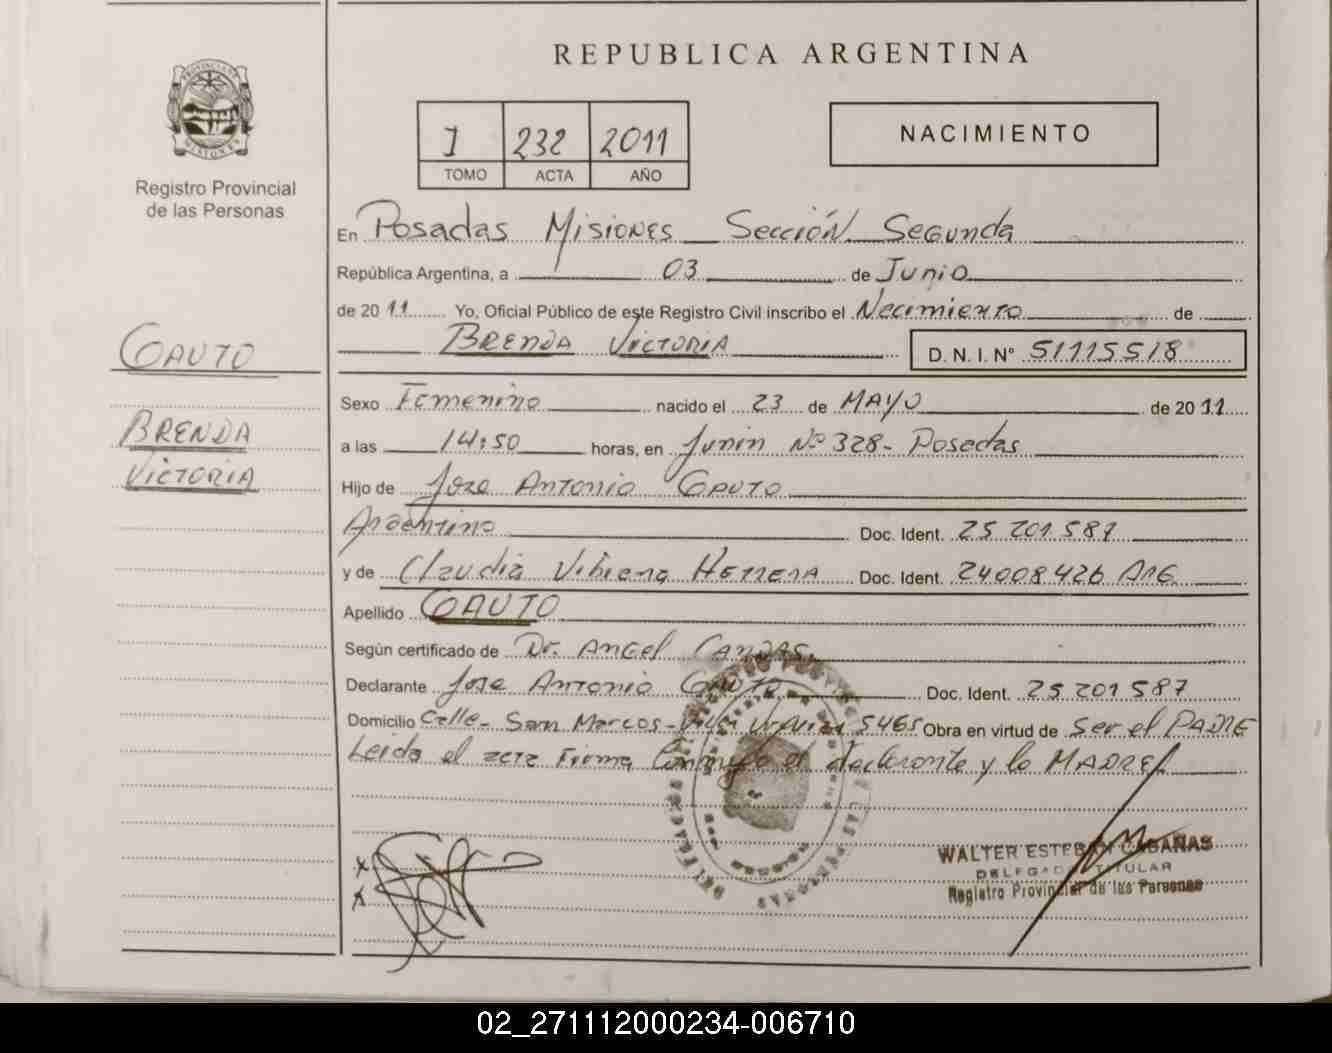 REPUBLICA ARGENTINA
PROVINCIA DE MISIONES
Registro Provincial
de las Personas
I 232 2011
TOMO ACTA AÑO
NACIMIENTO
En Posadas Misiones Sección Segunda
República Argentina, a 03 de Junio
de 2011 Yo, Oficial Público de este Registro Civil inscribo el Nacimiento de
BRENDA VICTORIA D. N. I. Nº 51115518
GAUTO
BRENDA
VICTORIA
Sexo Femenino nacido el 23 de MAYO de 2011
a las 14:50 horas, en Junin Nº 328- Posadas
Hijo de Jose Antonio GAUTO
Argentino Doc. Ident. 25 201 587
y de Claudia Vibiana HERRERA Doc. Ident. 24008426 ARG
Apellido GAUTO
Según certificado de Dr. Angel
Declarante Jose Antonio GAUTO Doc. Ident. 25 201 587
Domicilio Calle- San Marcos- 5465 Obra en virtud de Ser el PADRE
Leida el acta Firma Conmigo el declarante y la MADRE
WALTER ESTEBAN CABAÑAS
DELEGADO TITULAR
Registro Provincial de las Personas
02_271112000234-006710